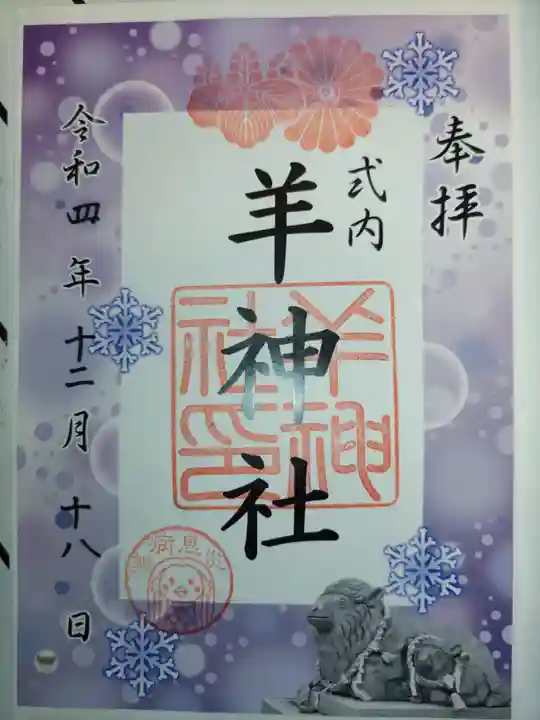 奉拝
式内
羊神社
羊神社印
令和四年十二月十八日